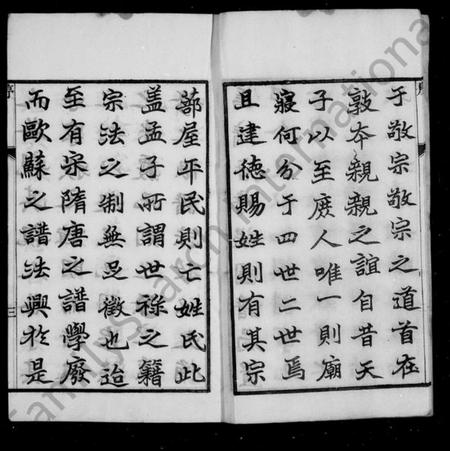 于敬宗敬宗之道首在
敦本親親之誼自昔天
子以至庶人唯一則廟
寢何分于四世二世焉
且建德賜姓則有其宗
蔀屋平民則亡姓氏此
蓋孟子所謂世祿之籍
宗法之制無足徵也迨
至有宋隋唐之譜學廢
而歐蘇之譜法興於是
序
三
FamilySearch International